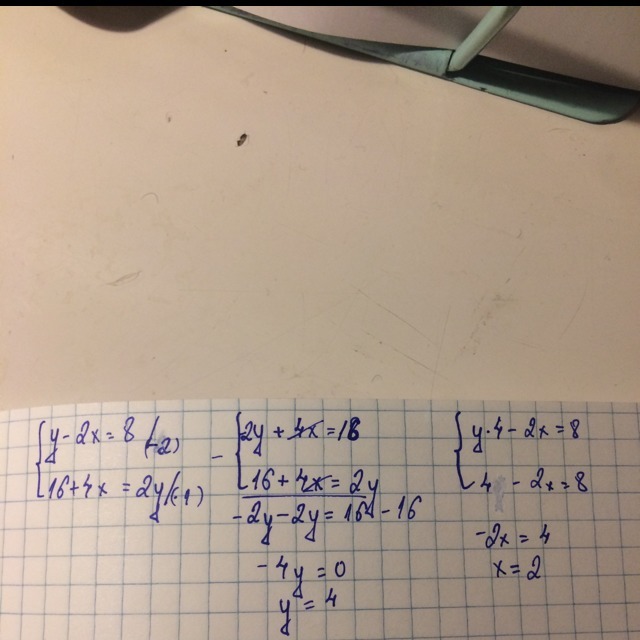 y - 2x = 8 (-2)
16 + 4x = 2y (-1)
- 2y + 4x = 18
16 + 4x = 2y
-2y - 2y = 16 - 16
-4y = 0
y = 4
y · 4 - 2x = 8
4 - 2x = 8
-2x = 4
x = 2